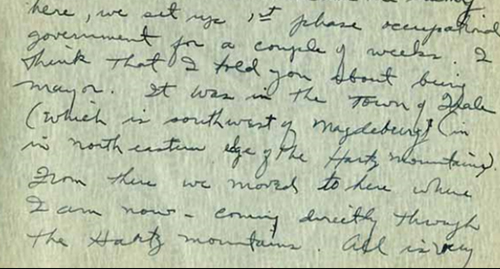 here, we set up 1st phase occupational
government for a couple of weeks. I
think that I told you about being
mayor. It was in the Town of Thale
(which is southwest of Magdeburg) (in
in north eastern edge of the Hartz mountains).
From there we moved to here where
I am now - coming directly through
the Hartz mountains. All is very